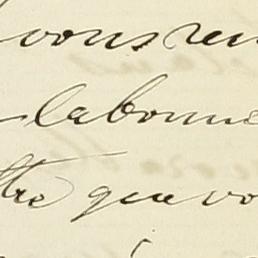 vous ren
la bonne
ttre que vo